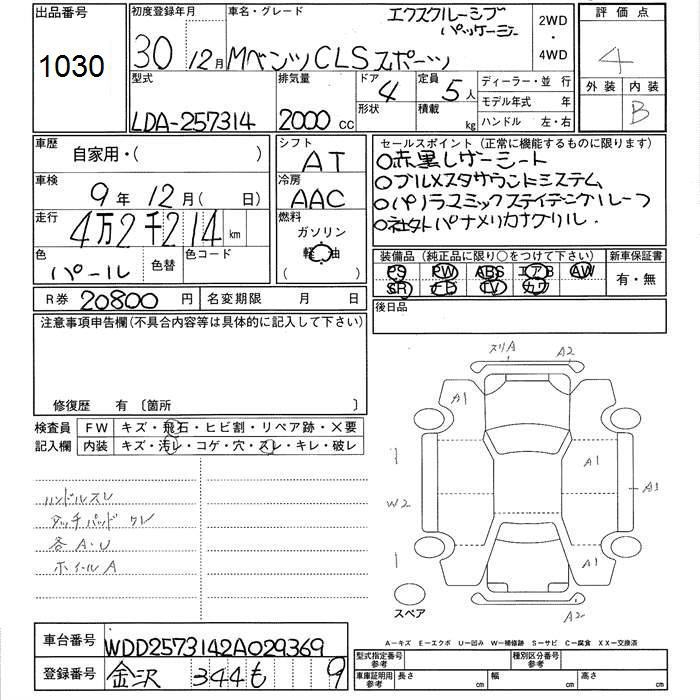 出品番号
1030
初度登録年月
30 12月
車名・グレード
エクスクルーシブ
パッケージ
Mベンツ CLS スポーツ
2WD
・
4WD
評価点
4
外装 内装
B
型式
LDA-257314
排気量
2000 cc
ドア
4
形状
定員
5人
積載
kg
ディーラー・並 行
モデル年式 年
ハンドル 左・右
車歴
自家用・( )
車検
9年 12月( 日)
走行
4万2千214km
色
パール
色替
色コード
シフト
AT
冷房
AAC
燃料
ガソリン
( 軽 油 )
セールスポイント(正常に機能するものに限ります)
○赤黒レザーシート
○ブルメスタサウンドシステム
○パノラミックスライディングルーフ
○社外パナメリカナグリル.
装備品(純正品に限り○をつけて下さい)
PS PW ABS エアB AW
SR ナビ TV カワ
新車保証書
有・無
R券 20800円
名変期限 月 日
後日品
注意事項申告欄(不具合内容等は具体的に記入して下さい)
修復歴 有〔箇所 〕
検査員
記入欄
FW キズ・飛石・ヒビ割・リペア跡・X要
内装 キズ・汚レ・コゲ・穴・スレ・キレ・破レ
ハンドルスレ
タッチパッド クレ
各A・U
ホイールA
スリA A2
A1
A1
W2
A3
A1
A2
スペア
A−キズ E−エクボ U−凹み W−補修跡 S−サビ C−腐食 XX−交換済
車台番号
WDD2573142A029369
登録番号
金沢 344 も 9
型式指定番号
参考
種別区分番号
参考
車庫証明用
参考
長さ cm 幅 cm 高さ cm